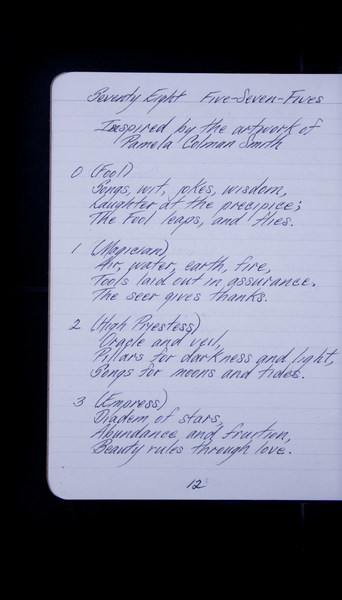 Seventy Eight Five-Seven-Fives
Inspired by the artwork of
Pamela Colman Smith
0 (Fool)
Songs, wit, jokes, wisdom,
Laughter at the precipice;
The Fool leaps, and flies.
1 (Magician)
Air, water, earth, fire,
Tools laid out in assurance.
The seer gives thanks.
2 (High Priestess)
Oracle and veil,
Pillars for darkness and light,
Songs for moons and tides.
3 (Empress)
Diadem of stars,
Abundance and fruition,
Beauty rules through love.
12